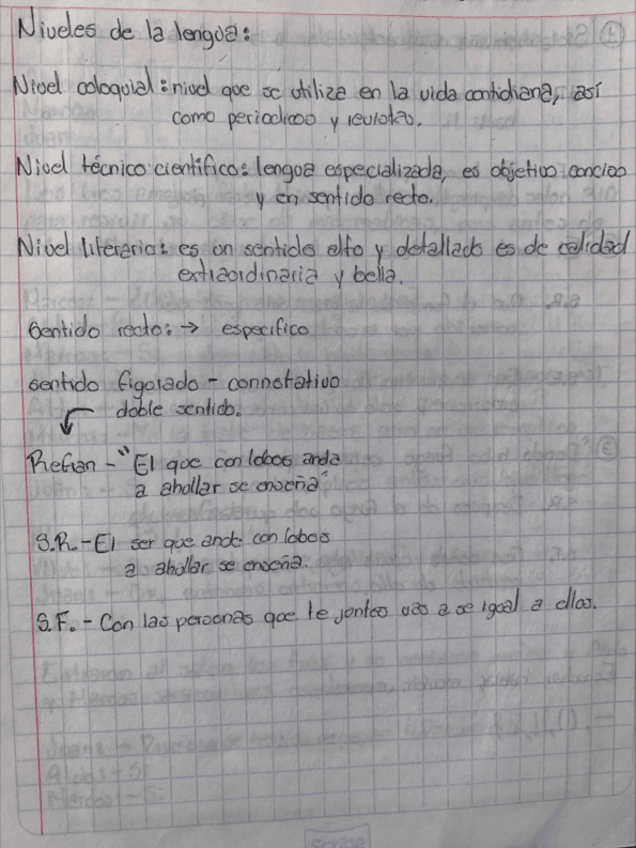 Niveles de la lengua:
Nivel coloquial: nivel que se utiliza en la vida contidiana, así
como periodicos y revistas.
Nivel técnico científico: lengua especializada, es objetivo conciso
y en sentido recto.
Nivel literario: es un sentido alto y detallado es de calidad
extraordinaria y bella.
Sentido recto: → especifico
sentido figurado - connotativo
doble sentido.
Refran - "El que con lobos anda
a ahullar se enseña"
S.R. - El ser que ande con lobos
a ahullar se enseña.
S.F. - Con las personas que te juntes vas a se igual a ellas.
Scribe